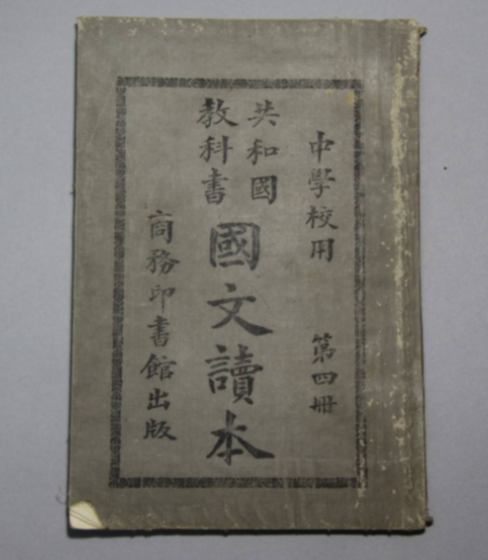 中學校用　第四冊
共和國
教科書
國文讀本
商務印書館出版